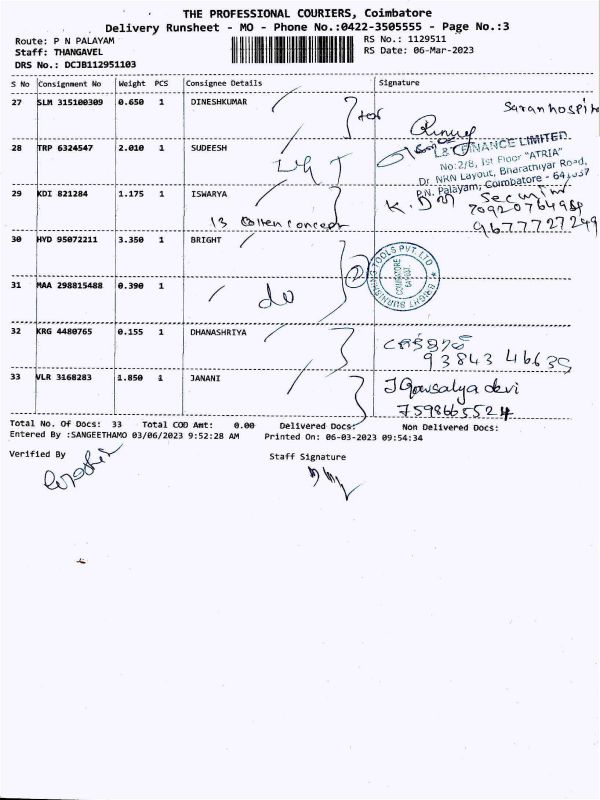 THE PROFESSIONAL COURIERS, Coimbatore
Delivery Runsheet - MO - Phone No.:0422-3505555 - Page No.:3
Route: P N PALAYAM RS No.: 1129511
Staff: THANGAVEL RS Date: 06-Mar-2023
DRS No.: DCJB112951103
S No Consignment No Weight PCS Consignee Details Signature
27 SLM 315100309 0.650 1 DINESHKUMAR
Saranhospital
28 TRP 6324547 2.010 1 SUDEESH
L&T
L&T FINANCE LIMITED.
No:2/8, Ist Floor "ATRIA"
Dr. NRN Layout, Bharathiyar Road,
P.N. Palayam, Coimbatore - 641037
29 KDI 821284 1.175 1 ISWARYA
13 Cotten concept
7092076498
9677727249
30 HYD 95072211 3.350 1 BRIGHT
2
BRIGHT BURNISHING TOOLS PVT. LTD
COIMBATORE
31 MAA 298815488 0.390 1
do
32 KRG 4480765 0.155 1 DHANASHRIYA
93843 46635
33 VLR 3168283 1.850 1 JANANI
J Gowsalya devi
7598665524
Total No. Of Docs: 33 Total COD Amt: 0.00 Delivered Docs: Non Delivered Docs:
Entered By :SANGEETHAMO 03/06/2023 9:52:28 AM Printed On: 06-03-2023 09:54:34
Verified By Staff Signature